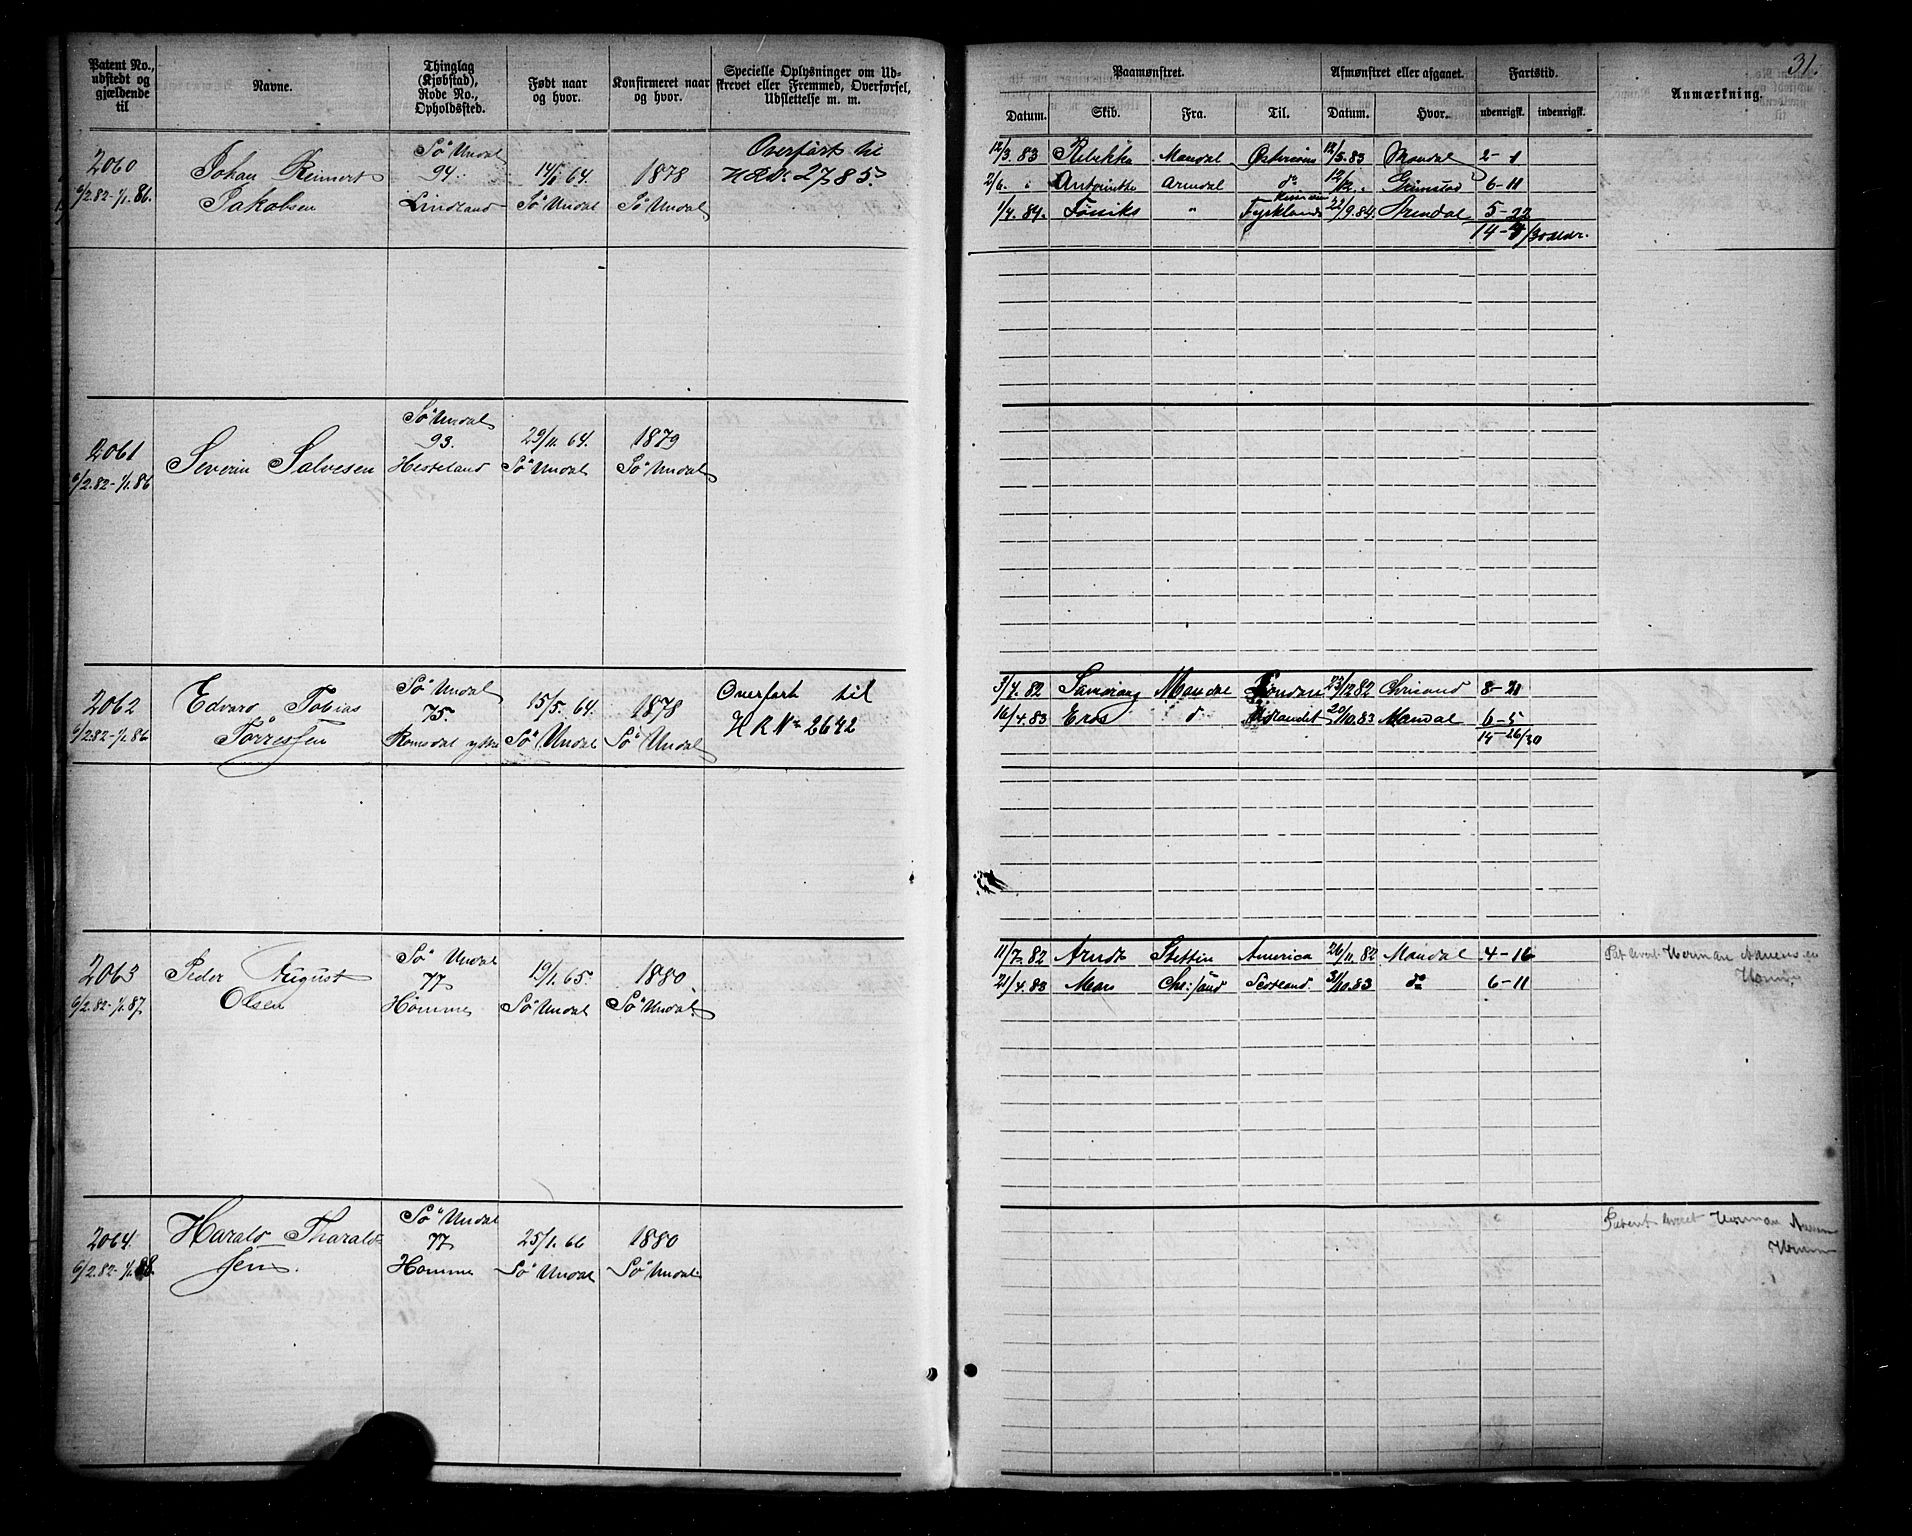 31.
Patent No., udstedt og gjældende til
Navne.
Thinglag (Kjøbstad), Rode No., Opholdssted.
Født naar og hvor.
Konfirmeret naar og hvor.
Specielle Oplysninger om Udskrevet eller Fremmed, Overførsel, Udslettelse m. m.
Paamønstret.
Afmønstret eller afgaaet.
Fartstid.
Anmærkning.
Datum. Skib. Fra. Til. Datum. Hvor. udenrigsk. indenrigsk.
2060
6/2.82-1/1.86.
Johan Reinert
Jakobsen
Sø Undal
94.
Lindland
64.
Sø Undal
1878
Sø Undal
Overført til
2785.
12/3.83 Rebekka Mandal 12/5.83 Mandal 2-1
2/6. " Antoinette Arendal do 12/12. " Grimstad 6-11
1/4.84. Føniks " Tyskland 22/9.84. Arendal 5-22
2061
6/2.82-1/1.86
Severin Salvesen
Sø Undal
93.
Hesteland
29/11.64.
Sø Undal
1879
Sø Undal
2062
6/2.82-1/1.86
Edvard Tobias
Torressen
Sø Undal
75.
Romedal ydtre
15/5.64.
Sø Undal
1878
Sø Undal
Overført til
HR No 2642
3/4.82 Samarang Mandal Chrisand 8-21
16/4.83 Eros d 20/10.83 Mandal 6-5
14-26/30
2063
6/2.82-1/1.87
Peder August
Olsen
Sø Undal
77
Homme
19/1.65.
Sø Undal
1880.
Sø Undal
11/7.82 Stettin America 26/11.82 Mandal 4-16
21/4.83 Mars Chr:sand Scotland. 31/10.83 do 6-11
Herman
2064
6/2.82-1/1.88.
Harald Tharald-
sen.
Sø Undal
77
Homme
25/1.66
Sø Undal
1880
Sø Undal
Patent Herman